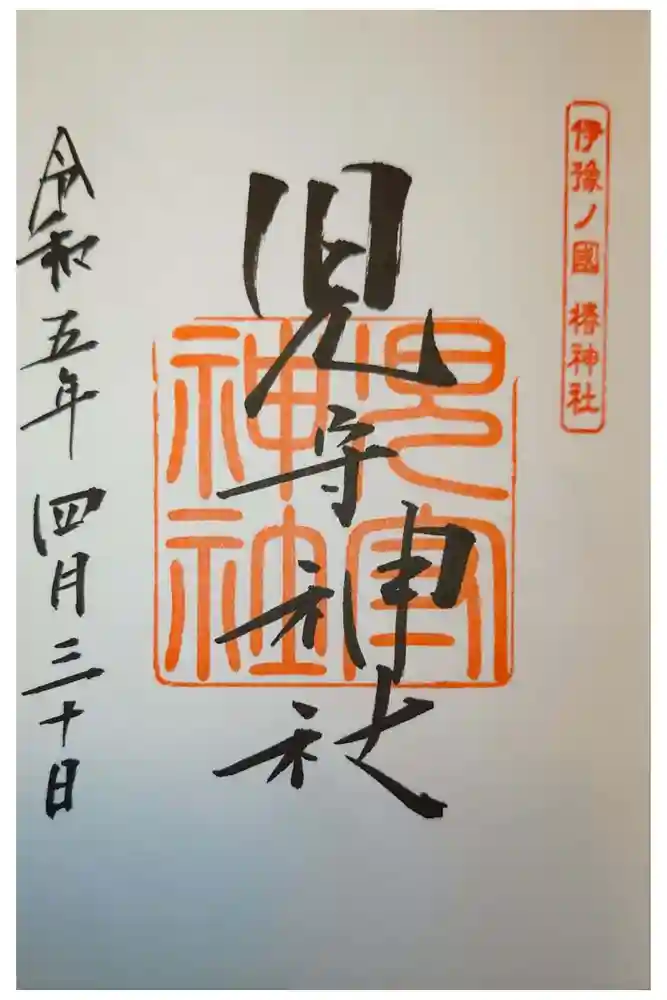 伊豫ノ國 椿神社
児守神社
児守神社
令和五年四月三十日